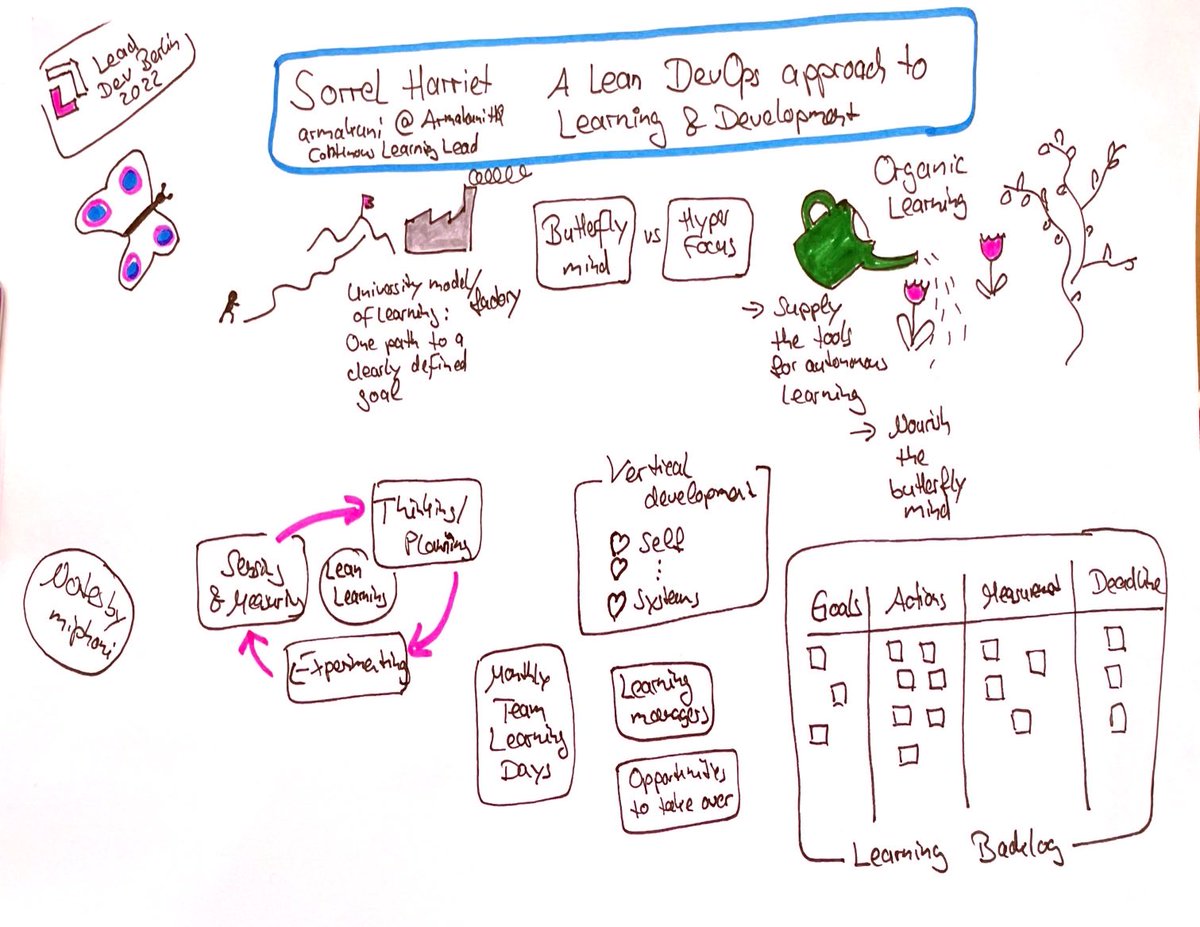 Lead
Dev Berlin
2022
Sorrel Harriet
armakuni @
Continuous Learning Lead
A Lean DevOps approach to
Learning & Development
University model/
factory
of learning:
One path to a
clearly defined
goal
Butterfly
mind
vs
Hyper
Focus
Organic
Learning
→ Supply
the tools
for autonomous
Learning
→ Nourish
the
butterfly
mind
Notes by
miphoni
Sensing
& Measuring
Thinking/
Planning
Lean
Learning
Experimenting
Vertical
development
Self
⋮
Systems
Monthly
Team
Learning
Days
Learning
managers
Opportunities
to take over
Goals
Actions
Measurement
Deadline
Learning Backlog